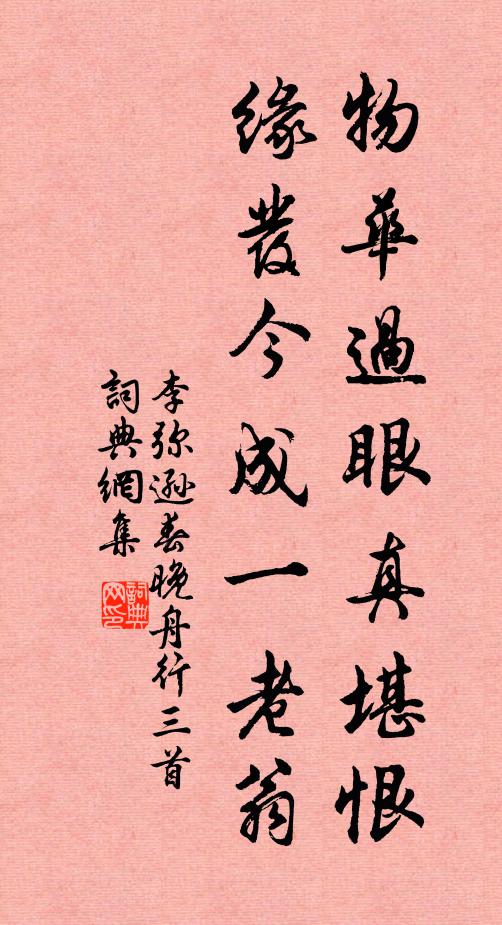 物華過眼真堪恨
緣發今成一老翁
李弥遜春晚舟行三首
詞典網集
詞典
網印